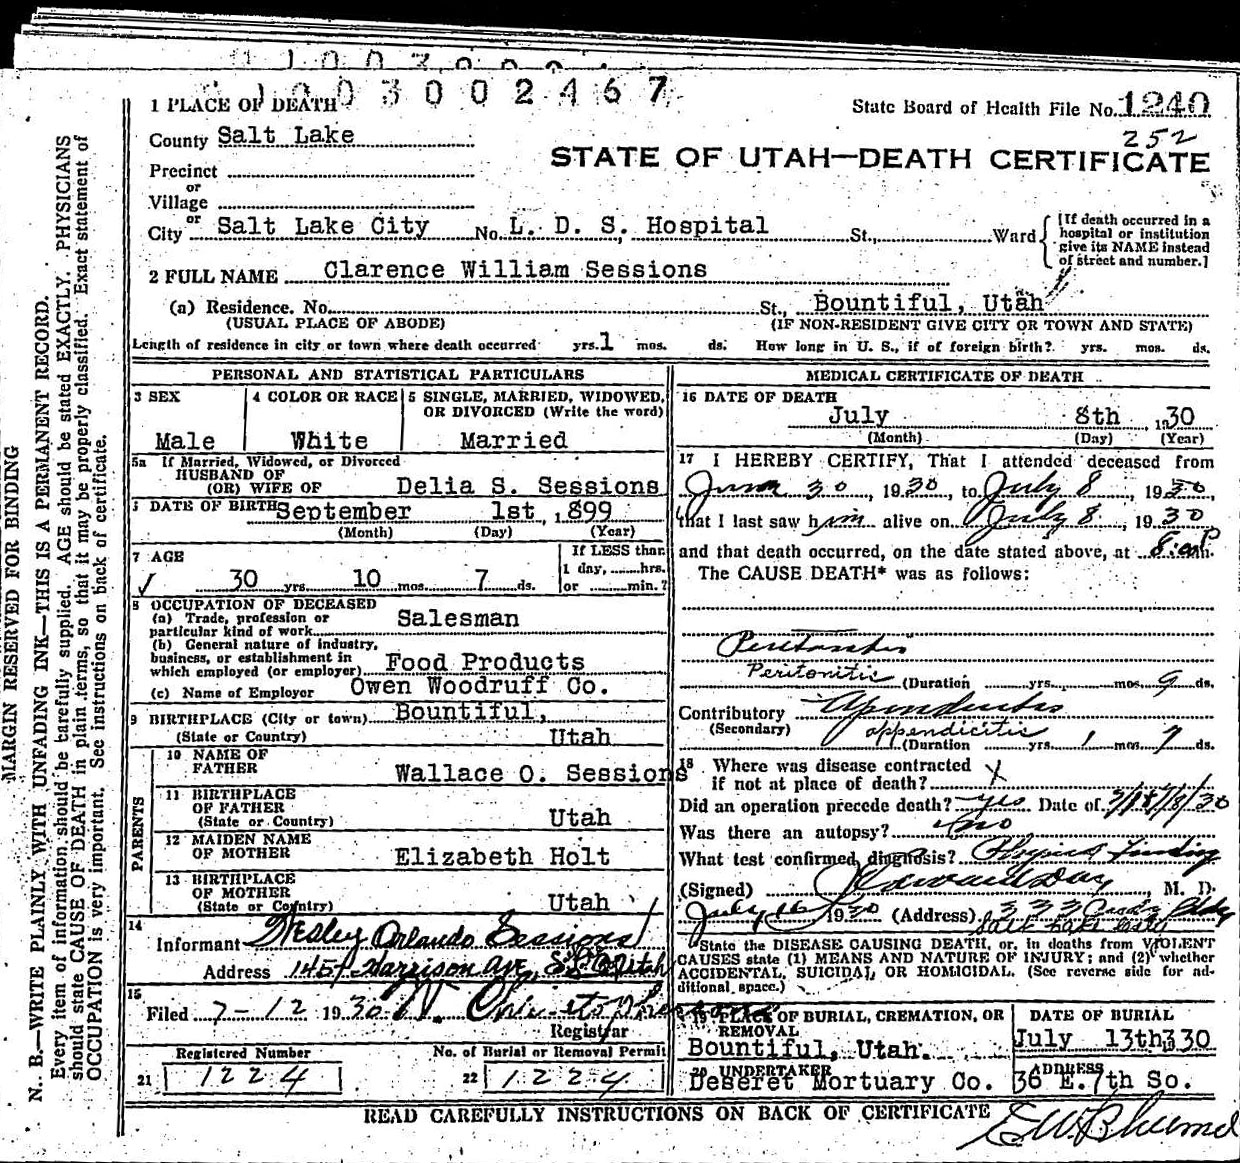 1003002467
1 PLACE OF DEATH
State Board of Health File No. 1240
County Salt Lake
252
STATE OF UTAH—DEATH CERTIFICATE
Precinct
or
Village
or
City Salt Lake City No. L. D. S. Hospital St., Ward
[If death occurred in a
hospital or institution
give its NAME instead
of street and number.]
2 FULL NAME Clarence William Sessions
(a) Residence. No. St., Bountiful, Utah
(USUAL PLACE OF ABODE) (IF NON-RESIDENT GIVE CITY OR TOWN AND STATE)
Length of residence in city or town where death occurred yrs. 1 mos. ds. How long in U. S., if of foreign birth? yrs. mos. ds.
PERSONAL AND STATISTICAL PARTICULARS
3 SEX 4 COLOR OR RACE 5 SINGLE, MARRIED, WIDOWED,
OR DIVORCED (Write the word)
Male White Married
5a If Married, Widowed, or Divorced
HUSBAND OF
(OR) WIFE OF Delia S. Sessions
DATE OF BIRTH September 1st, 1899
(Month) (Day) (Year)
7 AGE
If LESS than
1 day, hrs.
or min.?
√ 30 yrs. 10 mos. 7 ds.
8 OCCUPATION OF DECEASED
(a) Trade, profession or
particular kind of work Salesman
(b) General nature of industry,
business, or establishment in
which employed (or employer) Food Products
(c) Name of Employer Owen Woodruff Co.
9 BIRTHPLACE (City or town) Bountiful,
(State or Country) Utah
PARENTS
10 NAME OF
FATHER Wallace O. Sessions
11 BIRTHPLACE
OF FATHER
(State or Country) Utah
12 MAIDEN NAME
OF MOTHER Elizabeth Holt
13 BIRTHPLACE
OF MOTHER
(State or Country) Utah
14
Informant Wesley Orlando Sessions
Address 1457 Harrison Ave, Utah
15
Filed 7-12 1930
Registrar
Registered Number
21 1224
No. of Burial or Removal Permit
22 1224
MEDICAL CERTIFICATE OF DEATH
16 DATE OF DEATH
July 8th, 1930
(Month) (Day) (Year)
17 I HEREBY CERTIFY, That I attended deceased from
June 30, 1930, to July 8, 1930
that I last saw him alive on July 8, 1930
and that death occurred, on the date stated above, at m.
The CAUSE DEATH* was as follows:
Peritonitis
Peritonitis (Duration yrs. mos. 9 ds.
Contributory Apendicitis
(Secondary) appendicitis
(Duration yrs. 1 mos. 7 ds.
18 Where was disease contracted
if not at place of death? X
Did an operation precede death? yes Date of
Was there an autopsy? no
What test confirmed diagnosis? Finding
(Signed) M. D.
July 16 1930 (Address) 333
Salt Lake City
*State the DISEASE CAUSING DEATH, or, in deaths from VIOLENT
CAUSES state (1) MEANS AND NATURE OF INJURY; and (2) whether
ACCIDENTAL, SUICIDAL, OR HOMICIDAL. (See reverse side for ad-
ditional space.)
19 PLACE OF BURIAL, CREMATION, OR
REMOVAL
Bountiful, Utah.
DATE OF BURIAL
July 13th, 330
20 UNDERTAKER
Deseret Mortuary Co.
ADDRESS
36 E. 7th So.
READ CAREFULLY INSTRUCTIONS ON BACK OF CERTIFICATE
MARGIN RESERVED FOR BINDING
N. B.—WRITE PLAINLY WITH UNFADING INK—THIS IS A PERMANENT RECORD.
Every item of information should be carefully supplied. AGE should be stated EXACTLY. PHYSICIANS
should state CAUSE OF DEATH in plain terms, so that it may be properly classified. Exact statement of
OCCUPATION is very important. See instructions on back of certificate.